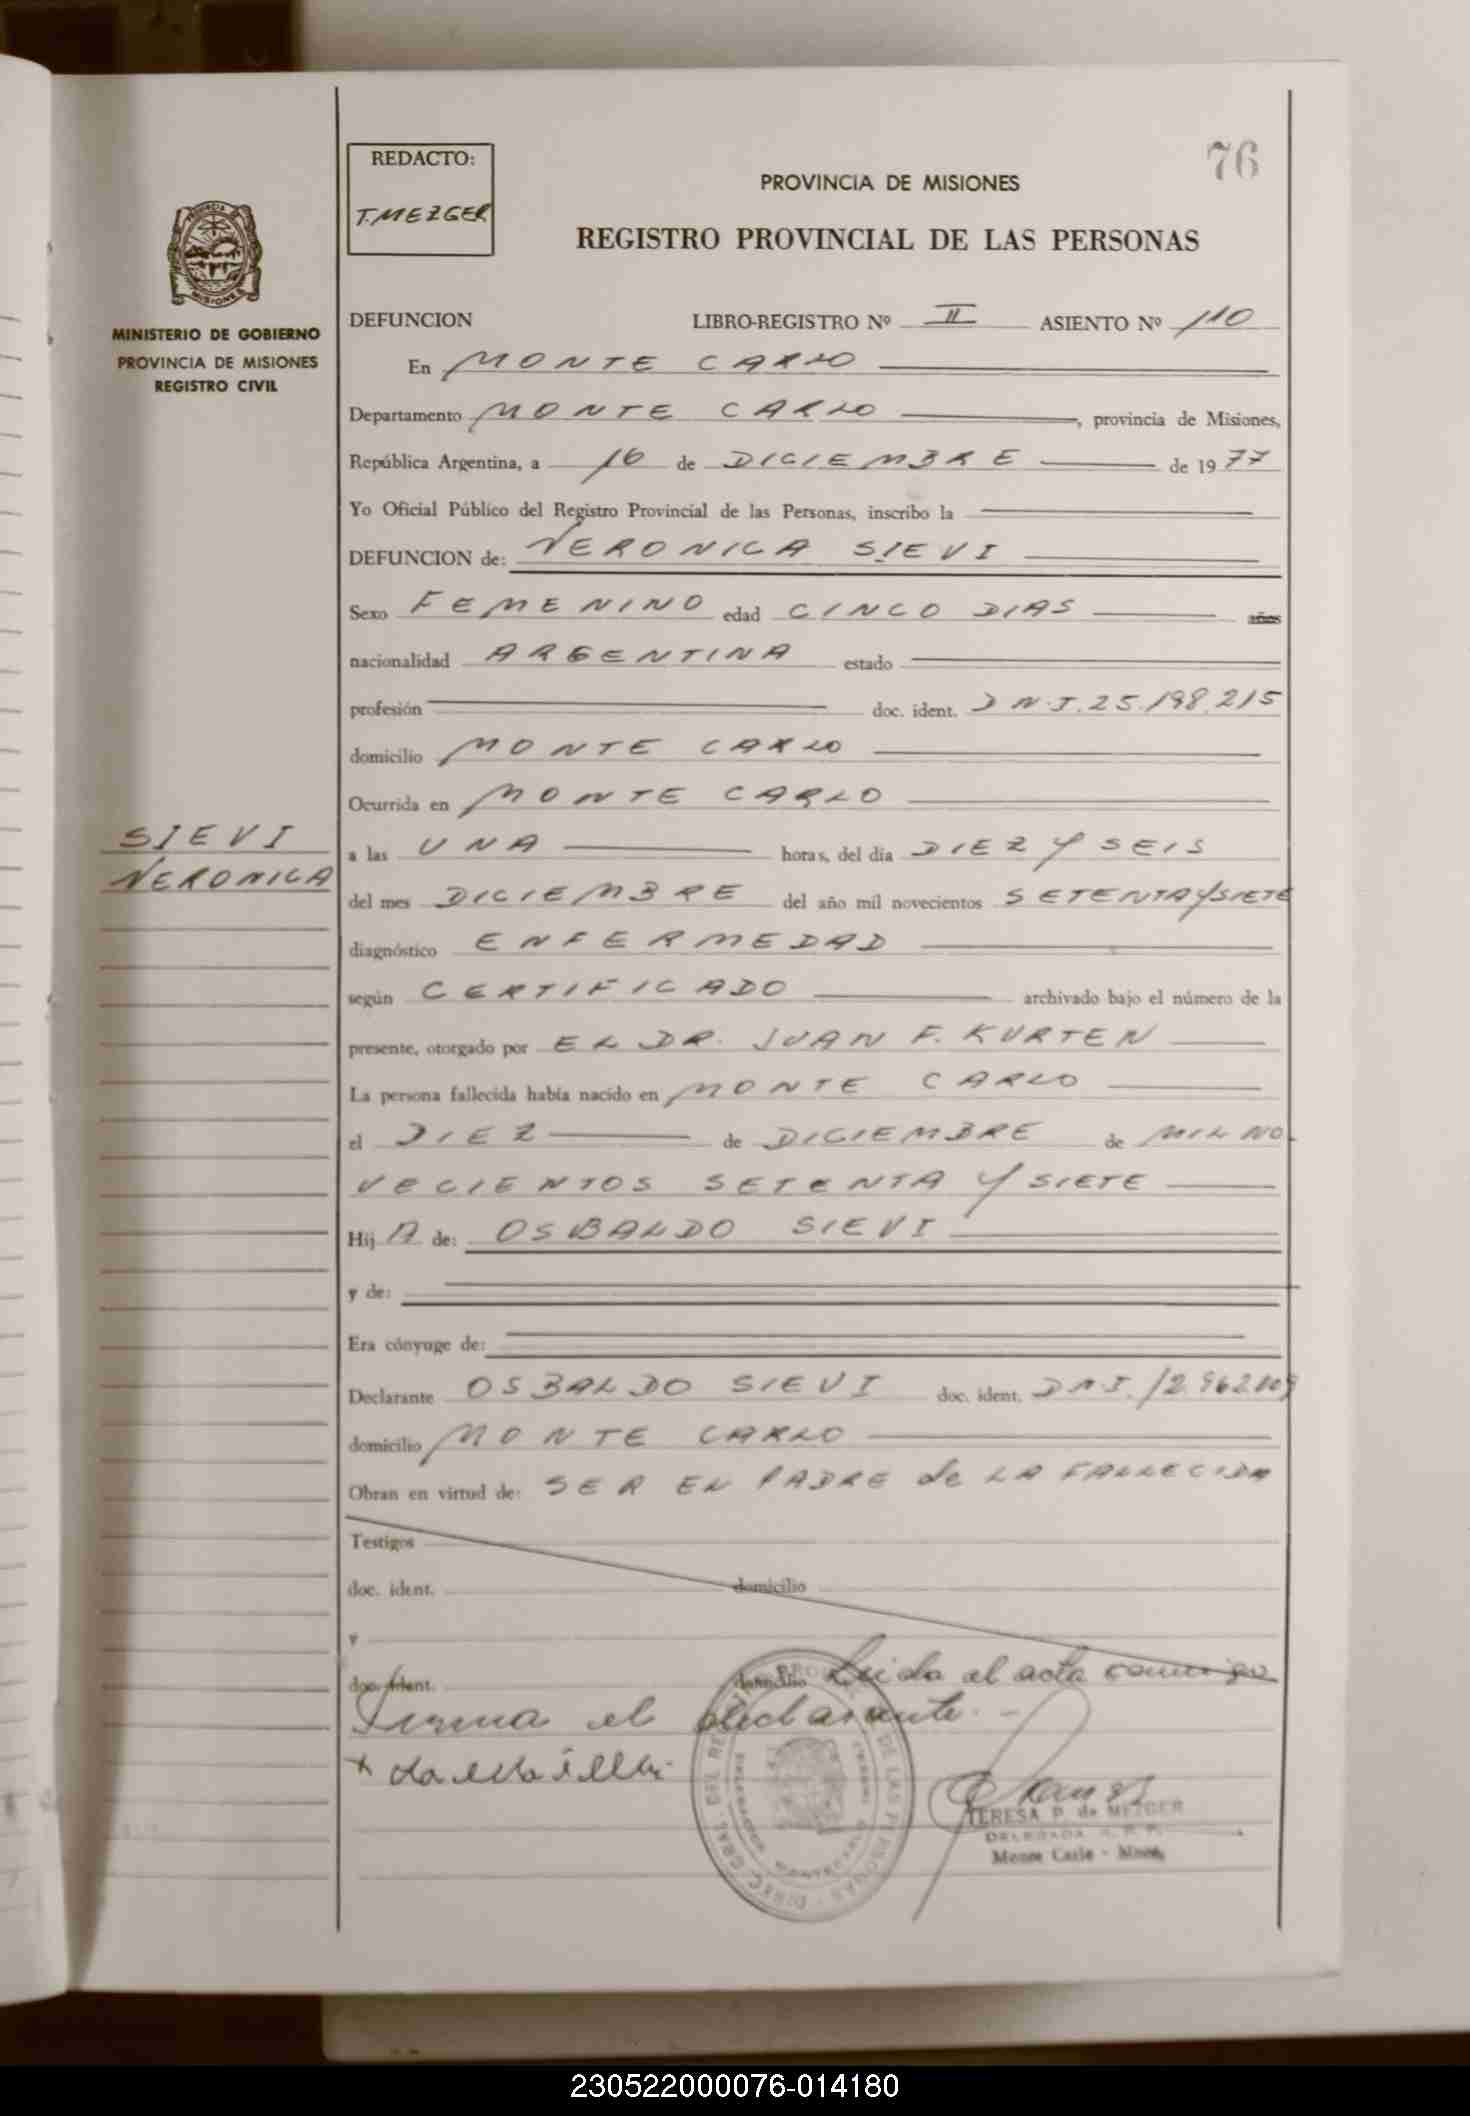 76
REDACTO:
T. MEZGER
PROVINCIA DE MISIONES
REGISTRO PROVINCIAL DE LAS PERSONAS
MINISTERIO DE GOBIERNO
PROVINCIA DE MISIONES
REGISTRO CIVIL
DEFUNCION LIBRO-REGISTRO Nº II ASIENTO Nº 110
En MONTE CARLO
Departamento MONTE CARLO, provincia de Misiones,
República Argentina, a 16 de DICIEMBRE de 1977
Yo Oficial Público del Registro Provincial de las Personas, inscribo la
DEFUNCION de: VERONICA SIEVI
Sexo FEMENINO edad CINCO DIAS años
nacionalidad ARGENTINA estado
profesión doc. ident. D.N.I. 25.198.215
domicilio MONTE CARLO
Ocurrida en MONTE CARLO
SIEVI
VERONICA
a las UNA horas, del día DIEZ Y SEIS
del mes DICIEMBRE del año mil novecientos SETENTA Y SIETE
diagnóstico ENFERMEDAD
según CERTIFICADO archivado bajo el número de la
presente, otorgado por EL DR. JUAN F. KURTEN
La persona fallecida había nacido en MONTE CARLO
el DIEZ de DICIEMBRE de MIL NO-
VECIENTOS SETENTA Y SIETE
HijA de: OSBALDO SIEVI
y de:
Era cónyuge de:
Declarante OSBALDO SIEVI doc. ident. D.N.I.
domicilio MONTE CARLO
Obran en virtud de: SER EN PADRE de LA FALLECIDA
Testigos
doc. ident. domicilio
y
doc. ident. domicilio Leida el acta conmigo
firma el declarante.-
TERESA P. de MEZGER
DELEGADA R. P. P.
Monte Carlo - Mnes.
230522000076-014180